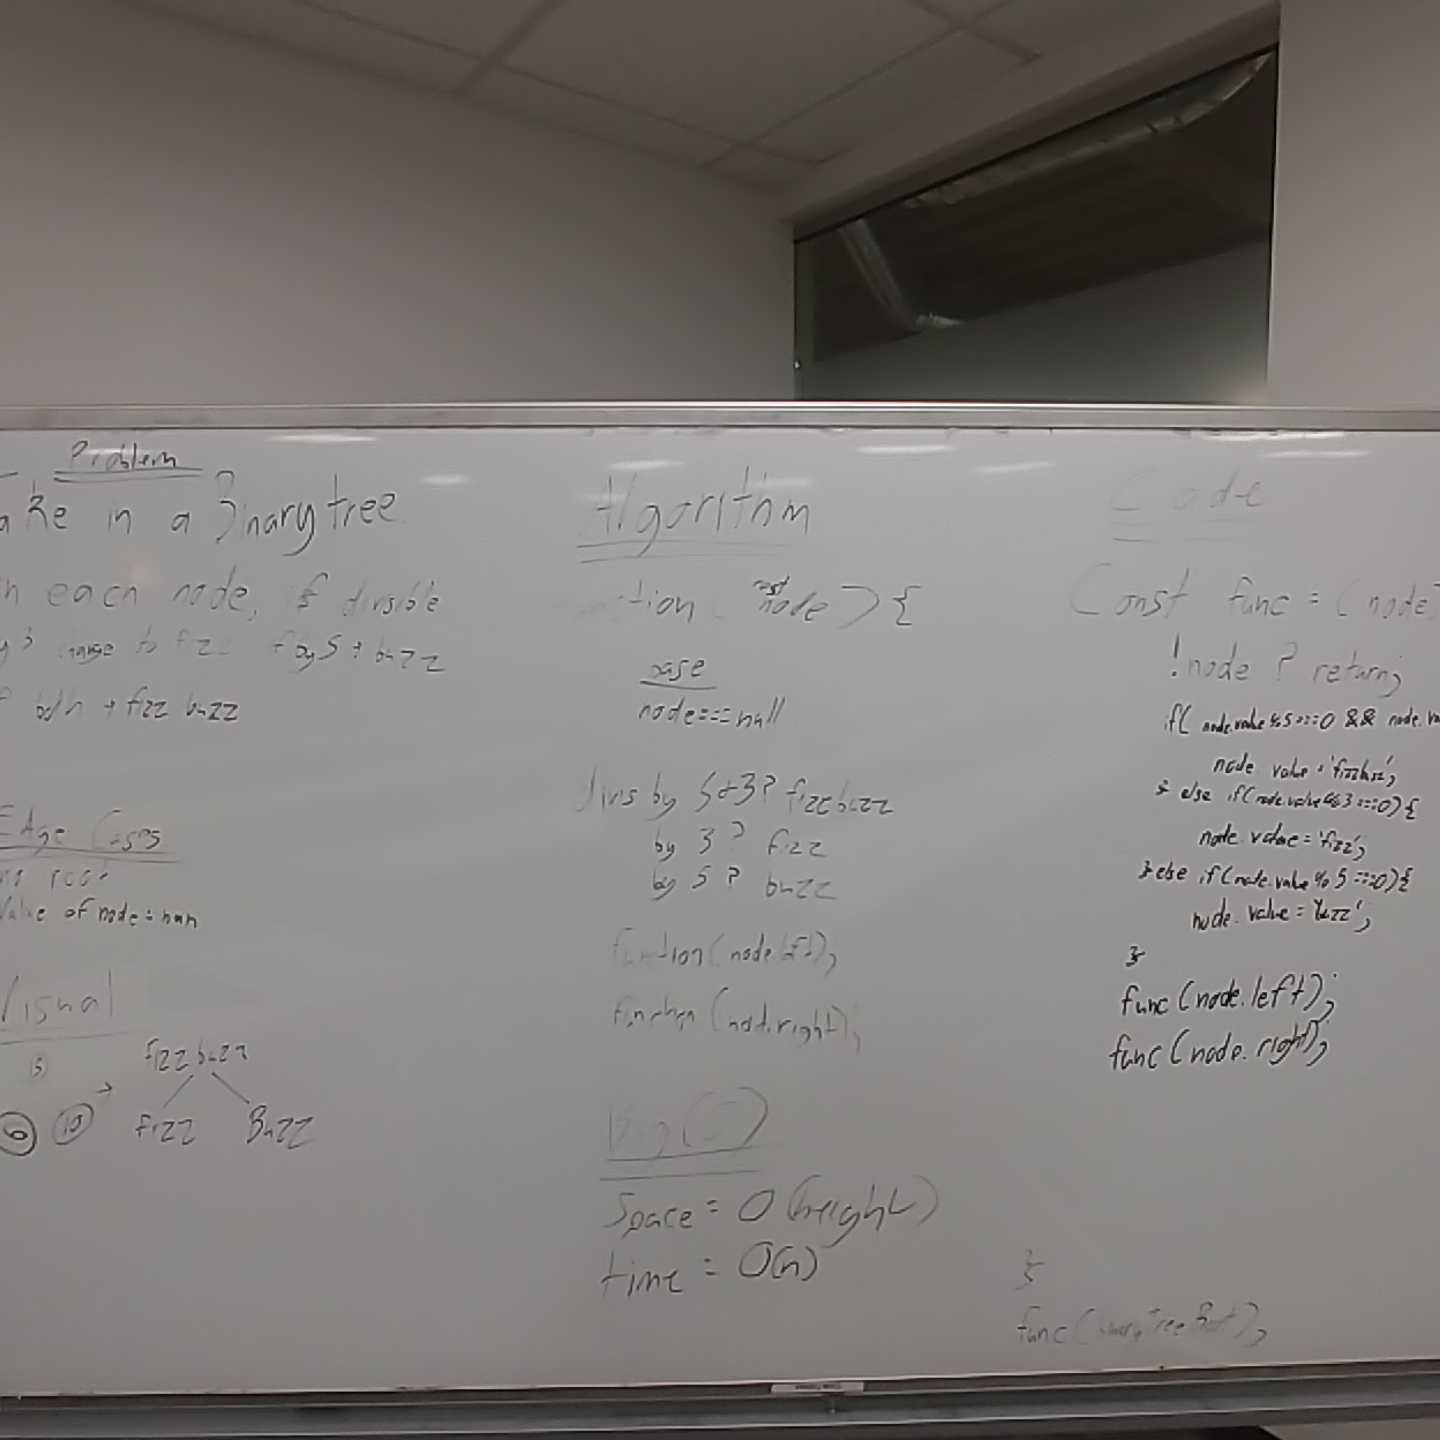 Problem
Take in a Binary tree
in each node, if divisible
by 3 change to fizz if by 5 → buzz
if both → fizz buzz
Edge Cases
no root
Value of node = nan
Visual
15
6 10 →
fizz buzz
fizz Buzz
Algorithm
root
function (node) {
base
node===null
divis by 5 + 3? fizzbuzz
by 3? fizz
by 5? buzz
function(node.left);
function(node.right);
Big O
Space = O(height)
time = O(n)
Code
Const func = (node)
!node ? return;
if( node.value%5===0 && node.va
node value = 'fizzbuzz';
} else if(node.value%3===0){
node. value='fizz';
} else if(node.value % 5 ===0){
node. value = 'buzz';
}
func(node.left);
func(node.right);
}
func(binaryTree.Root);